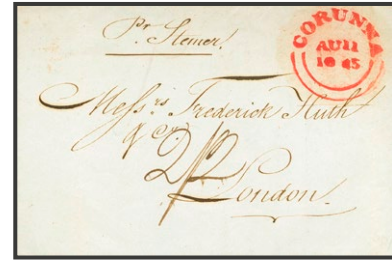 Pr. Stemer!
CORUNNA
AU 11
1845
Messrs. Frederick Huth
& Co.
2/2
London.